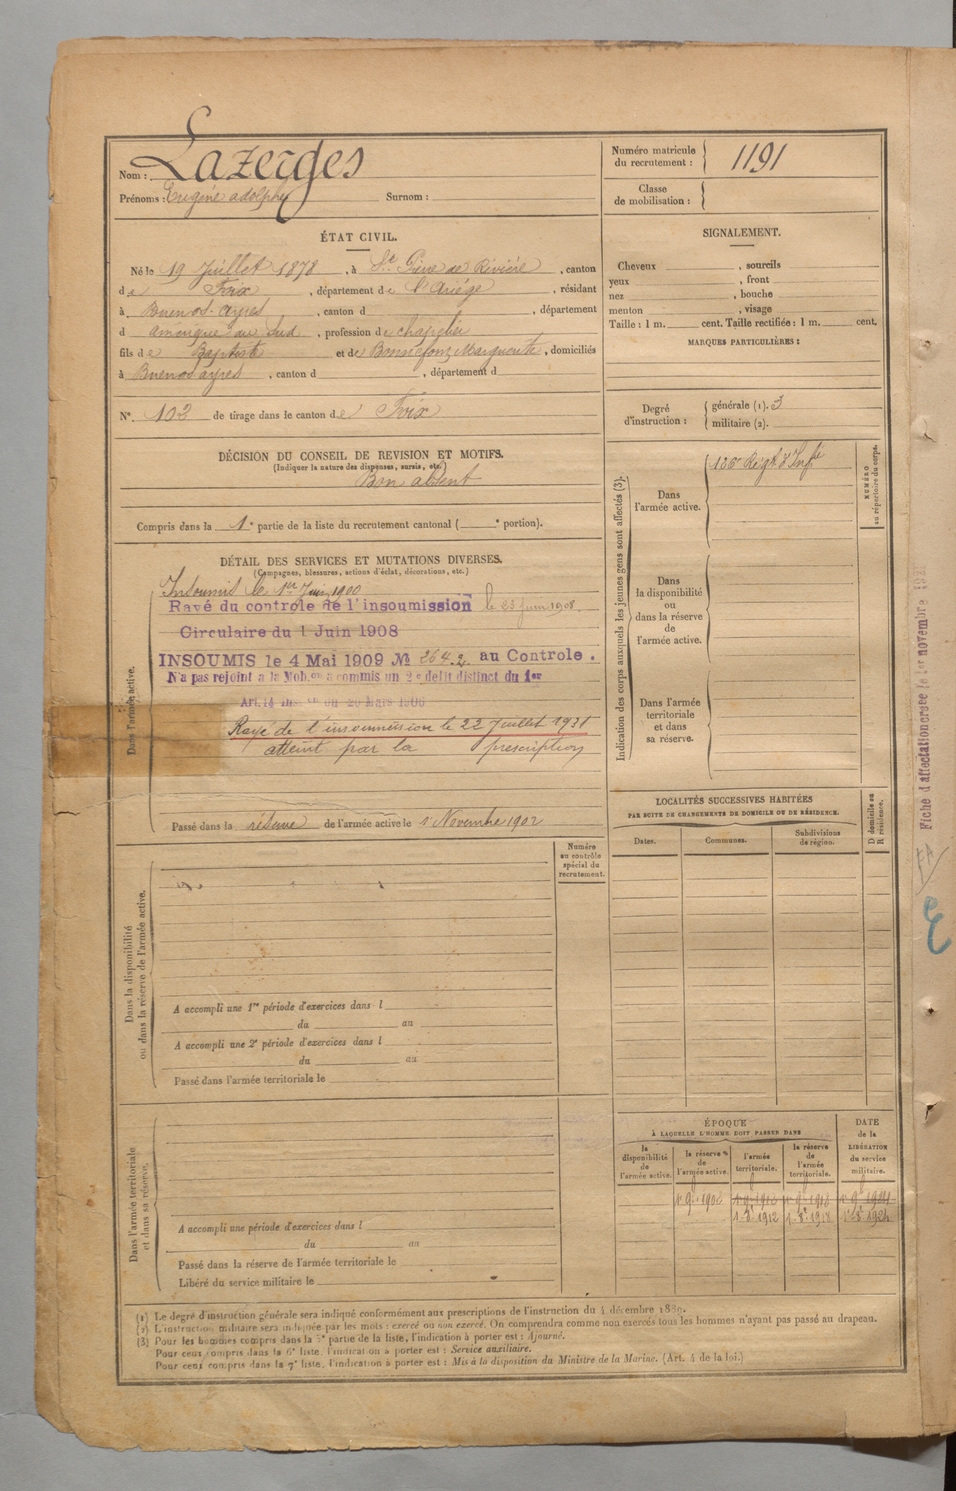 Nom : Lazerges
Prénoms : Eugène adolphe Surnom :
Numéro matricule du recrutement : 1191
Classe de mobilisation :
ÉTAT CIVIL.
Né le 19 Juillet 1878, à St. Pierre de Rivière, canton
de Foix, département de l'Ariége, résidant
à Buenos-ayres, canton d , département
d amérique du Sud, profession de chapelier
fils de Baptiste et de Bonnefont Marguerite, domiciliés
à Buenos ayres, canton d , département d
N° 102 de tirage dans le canton de Foix
SIGNALEMENT.
Cheveux , sourcils
yeux , front
nez , bouche
menton , visage
Taille : 1 m. cent. Taille rectifiée : 1 m. cent.
MARQUES PARTICULIÈRES :
Degré d'instruction : générale (1). 3
militaire (2).
DÉCISION DU CONSEIL DE REVISION ET MOTIFS.
(Indiquer la nature des dispenses, sursis, etc.)
Bon absent
Compris dans la 1e partie de la liste du recrutement cantonal ( e portion).
DÉTAIL DES SERVICES ET MUTATIONS DIVERSES.
(Campagnes, blessures, actions d'éclat, décorations, etc.)
Dans l'armée active.
Insoumis le 1er Juin 1900
Rayé du controle de l'insoumission le 23 juin 1908.
Circulaire du 1 Juin 1908
INSOUMIS le 4 Mai 1909 No 264.2 au Controle.
N'a pas rejoint a la Mobon a commis un 2e delit distinct du 1er
Art. 14 Inson du 20 Mars 1906
Rayé de l'insoumission le 22 Juillet 1931
atteint par la prescription
Passé dans la réserve de l'armée active le 1 Novembre 1902
Indication des corps auxquels les jeunes gens sont affectés (3).
Dans l'armée active. Régt d'Infie
Dans la disponibilité ou dans la réserve de l'armée active.
Dans l'armée territoriale et dans sa réserve.
NUMÉRO au répertoire du corps.
LOCALITÉS SUCCESSIVES HABITÉES
PAR SUITE DE CHANGEMENTS DE DOMICILE OU DE RÉSIDENCE.
Dates. Communes. Subdivisions de région.
D domicile ou R résidence.
Numéro au contrôle spécial du recrutement.
Dans la disponibilité ou dans la réserve de l'armée active.
A accompli une 1re période d'exercices dans l
du au
A accompli une 2e période d'exercices dans l
du au
Passé dans l'armée territoriale le
Dans l'armée territoriale et dans sa réserve.
A accompli une période d'exercices dans l
du au
Passé dans la réserve de l'armée territoriale le
Libéré du service militaire le
ÉPOQUE
À LAQUELLE L'HOMME DOIT PASSER DANS
la disponibilité de l'armée active.
la réserve de l'armée active.
l'armée territoriale.
la réserve de l'armée territoriale.
DATE de la LIBÉRATION du service militaire.
1 9e 1902 1 9e 1912 1 9e 1918 1 9e 1924
1 8e 1912 1 8e 1918 1 8e 1924
(1) Le degré d'instruction générale sera indiqué conformément aux prescriptions de l'instruction du 4 décembre 1889.
(2) L'instruction militaire sera indiquée par les mots : exercé ou non exercé. On comprendra comme non exercés tous les hommes n'ayant pas passé au drapeau.
(3) Pour les hommes compris dans la 5e partie de la liste, l'indication à porter est : Ajourné.
Pour ceux compris dans la 6e liste, l'indication à porter est : Service auxiliaire.
Pour ceux compris dans la 7e liste, l'indication à porter est : Mis à la disposition du Ministre de la Marine. (Art. 4 de la loi.)
Fiche d'affectation créée le 1er novembre